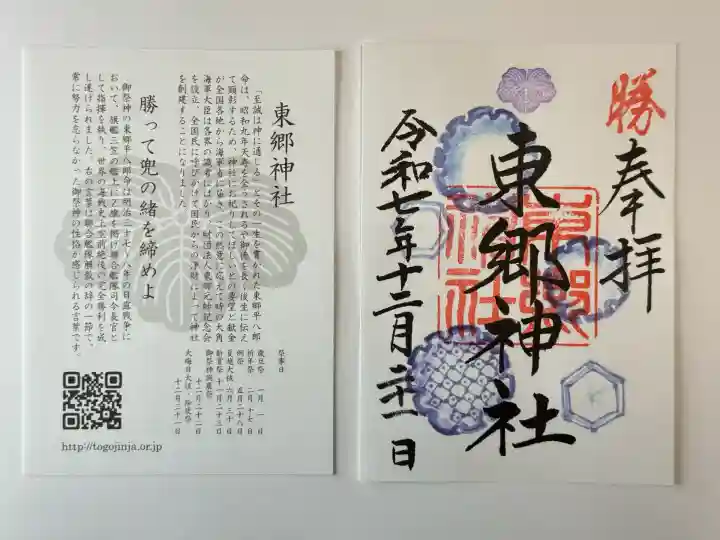 東郷神社
「至誠は神に通じる」とその一生を貫かれた東郷平八郎
命は、昭和九年天寿を全うされるや御徳を長く後生に伝え
て顕彰するため、神社にお祀りしてほしいとの要望と献金
が全国各地から海軍省に届き、この熱意に応えて時の大角
海軍大臣は各界の識者にはかり、財団法人東郷元帥記念会
を設立、全国民に呼びかけて国民からの浄財によって神社
を創建することになりました。
勝って兜の緒を締めよ
御祭神の東郷平八郎命は明治三十七・八年の日露戦争に
おいて、旗艦三笠の艦上にZ旗を掲げ聯合艦隊司令長官と
して指揮を執り、世界の海戦史上空前絶後の完全勝利を成
し遂げられました。右の言葉は聯合艦隊解散の辞の一節で、
常に努力を怠らなかった御祭神の性格が感じられる言葉です。
祭事日
歳旦祭 一月一日
祈年祭 二月十七日
例祭 五月二十八日
夏越大祓 六月三十日
新嘗祭 十一月二十三日
御祭神誕辰祭 十二月二十二日
大晦日大祓・除夜祭 十二月三十一日
http://togojinja.or.jp
勝
奉拝
東郷神社
東郷神社
令和七年十二月二十一日